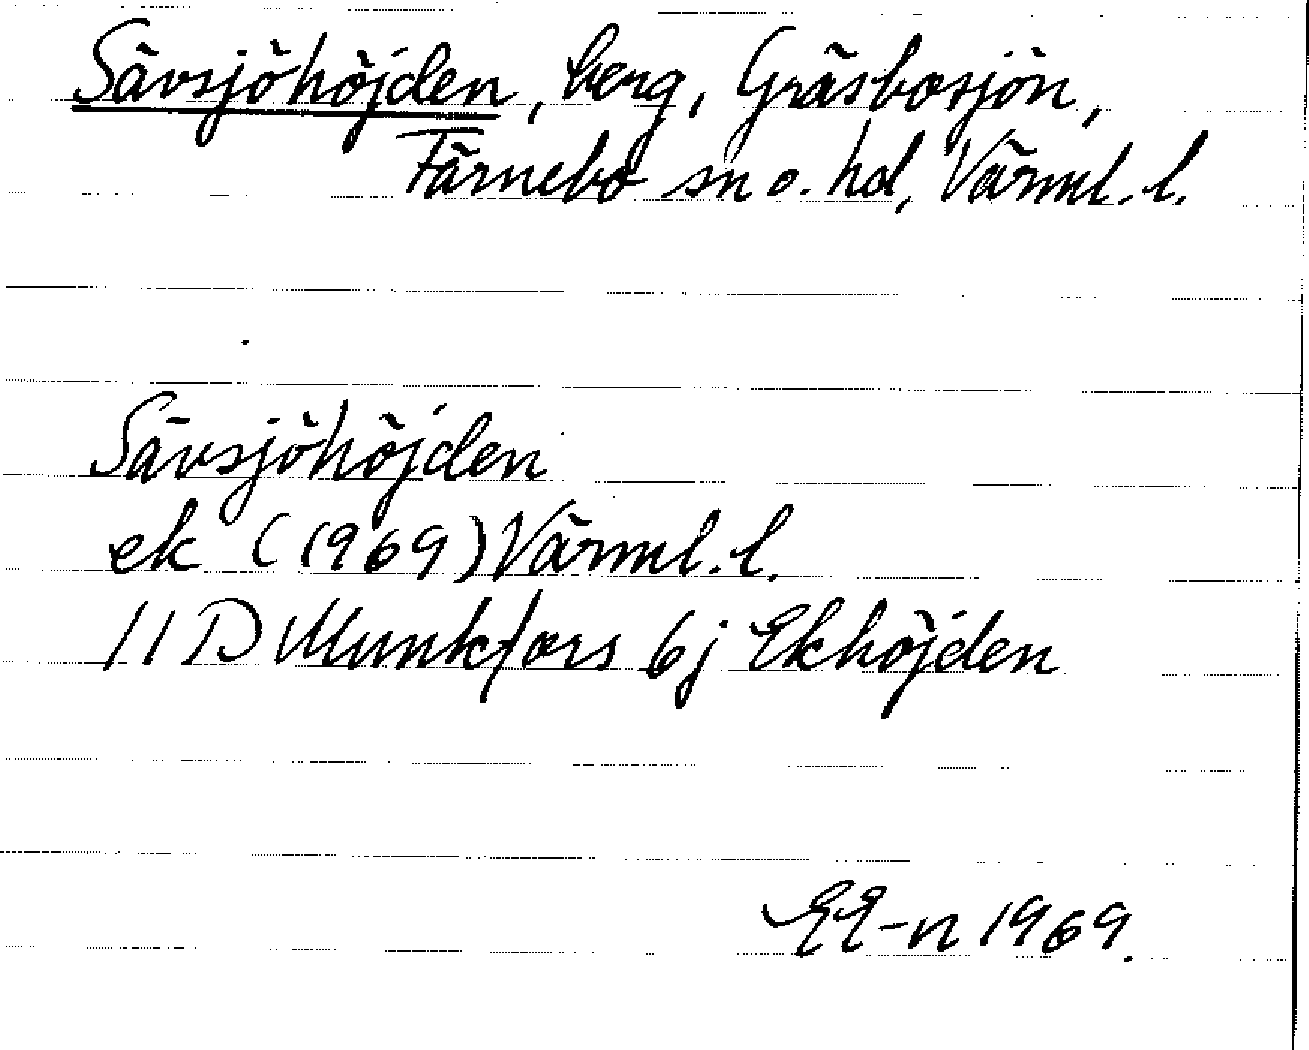 Sävsjöhöjden, berg, Gräsbosjön,
Färnebo sn o. hd, Värml. l.
Sävsjöhöjden
ek (1969) Värml. l.
11 D Munkfors 6j Ekhöjden
EE-n 1969.